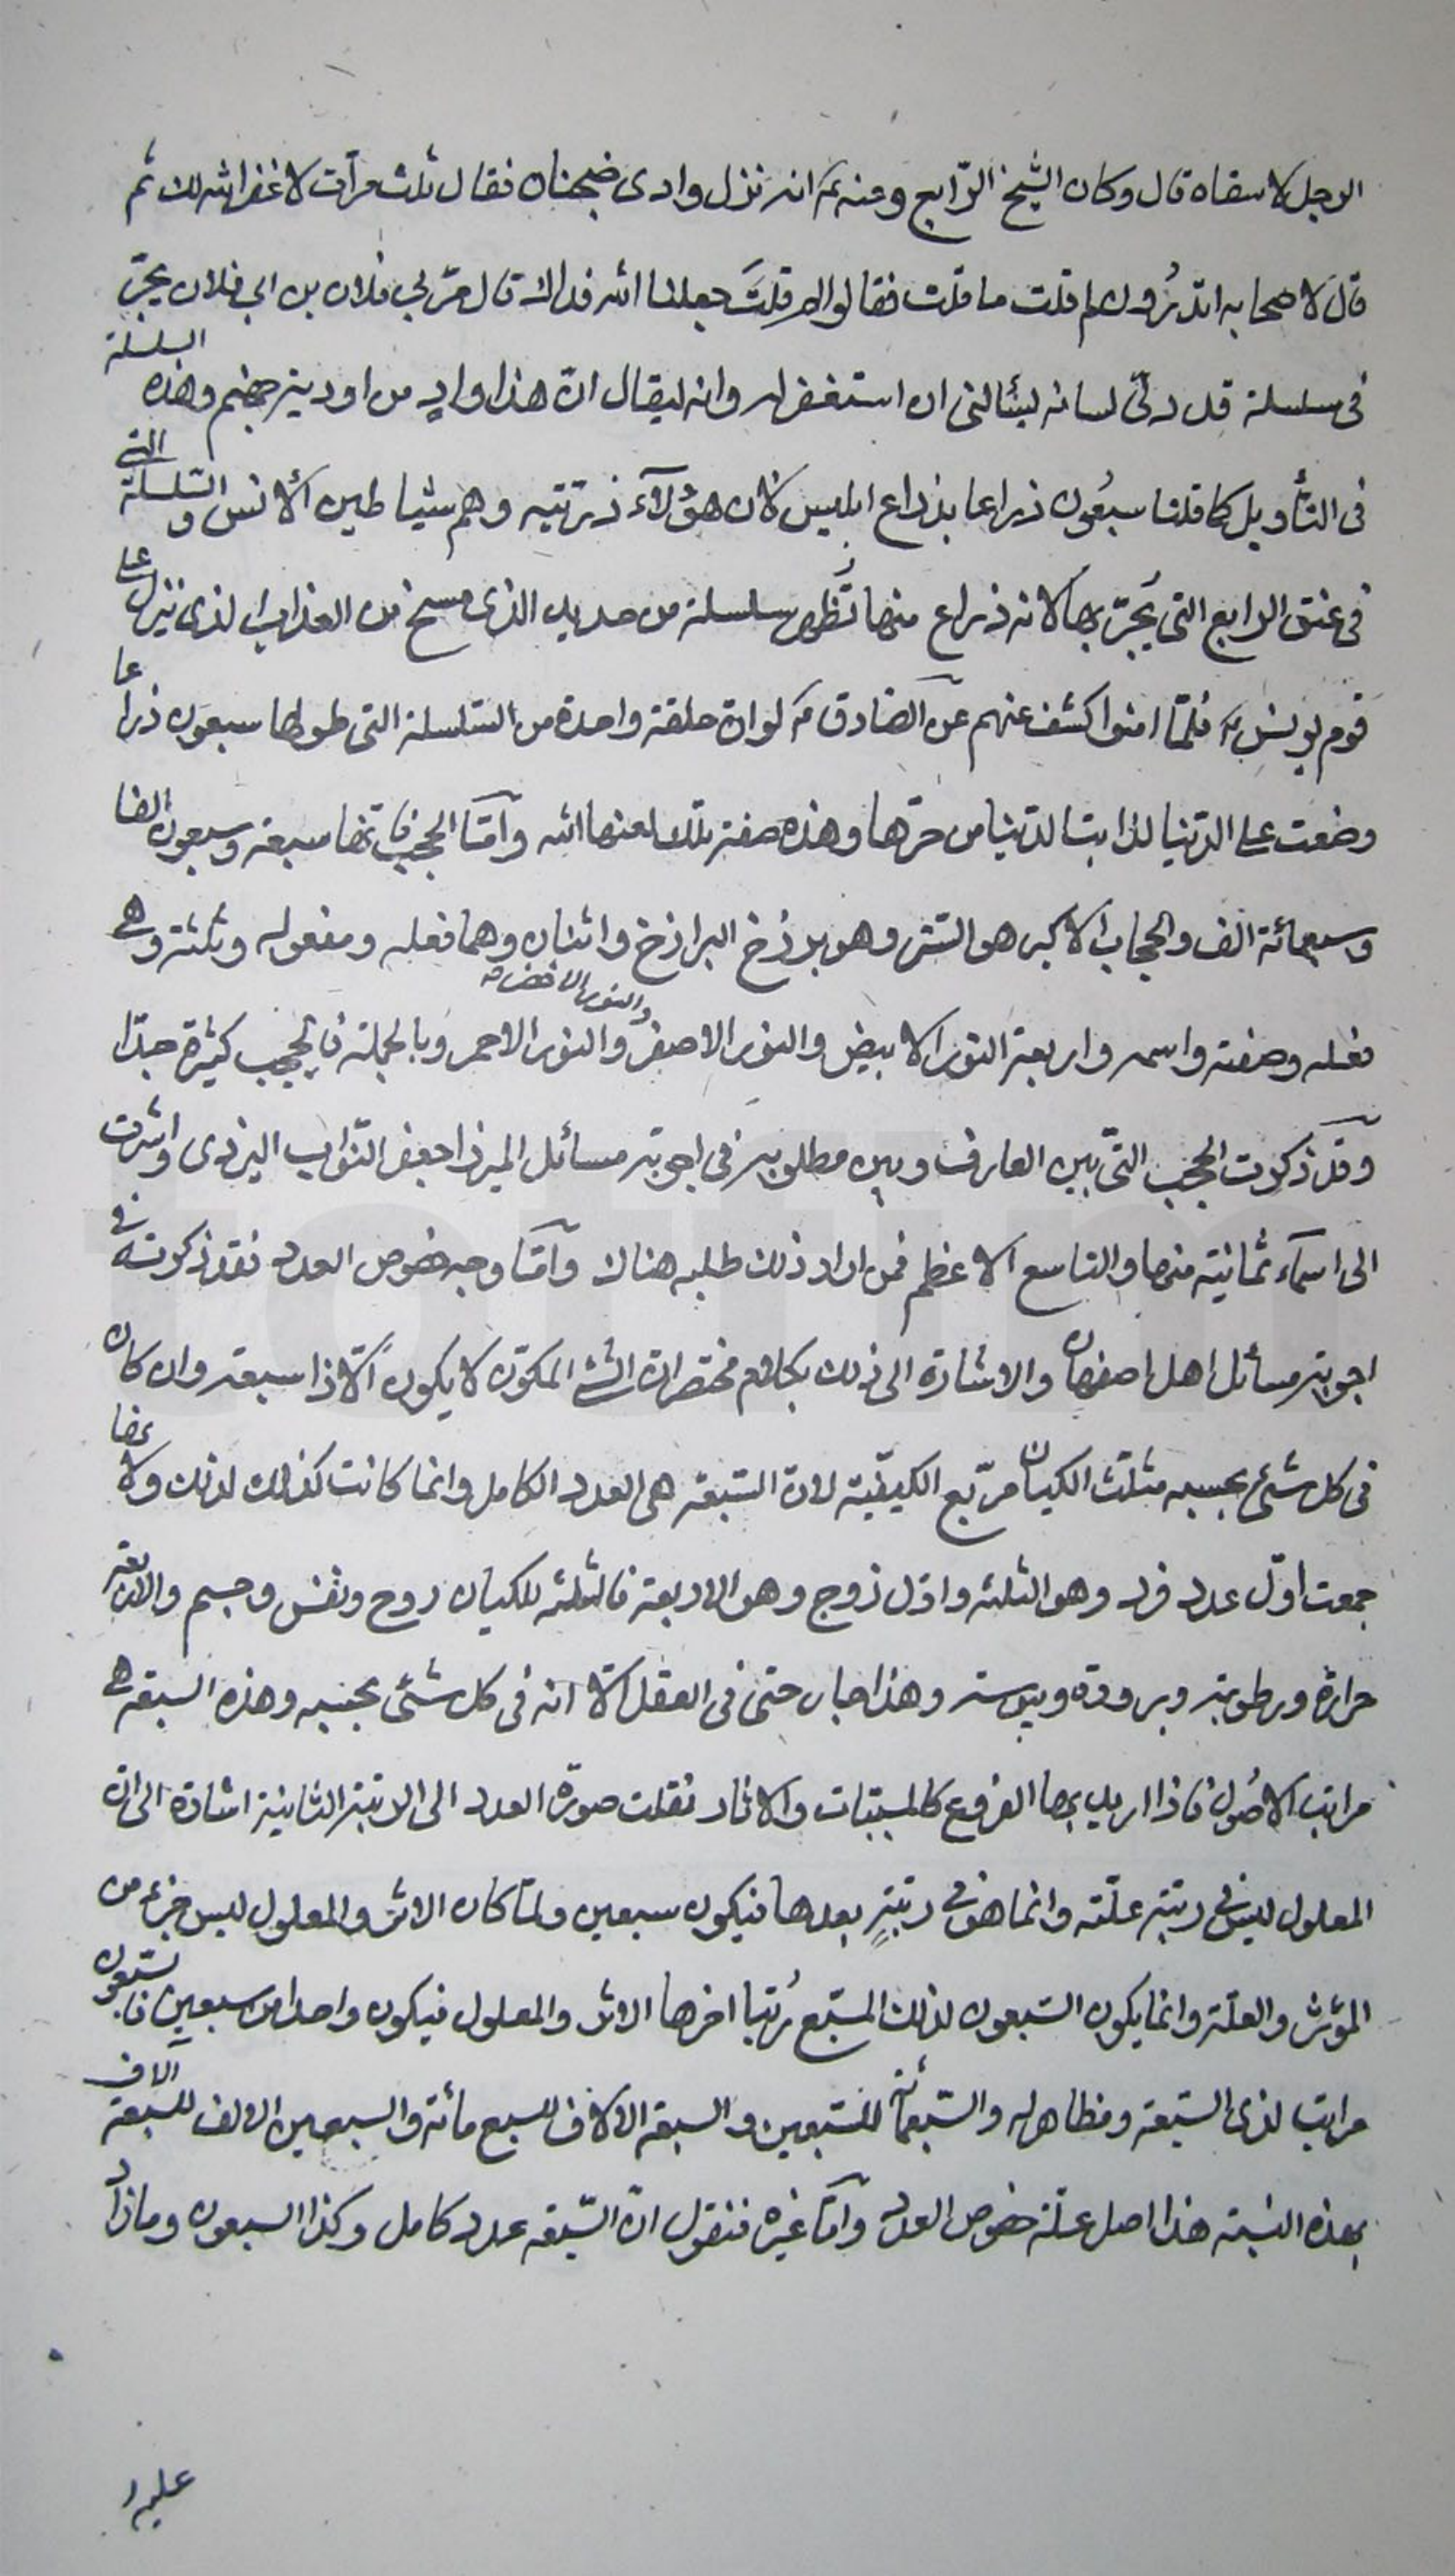 الرجل لا سقاه قال وكان الشيخ الرّابع ومنه ؑم انه نزل وادى ضجنان فقال ثلث مرّات لا غفر الله لك ثم
قال لاصحابه اتدرُون لم قلت ما قلت فقالوا لم قلتَ جعلنا الله فداك قال مرّ بي فلان بن ابي فلان يجرّ
فى سلسلة قد دلّى لسانه ليسئالنى ان استغفر له وانه ليقال انّ هذا وادٍ من اودية جهنم وهذه السلسلة
فى التأويل كما قلنا سبعُون ذراعا بذراع ابليس لان هؤلآء ذرّيته وهم شياطين الانس و السّلسلة التى
فى عنق الرابع التى يَجرّ بها لانه ذراع منها تُظُهر سلسلة من حديد الذى مسخ من العذاب الذى نزل على
قوم يونس ؑم فلمّا امنوا كشف عنهم عن الصّادق ؑم لو انّ حلقة واحدة من السّلسلة التى طولها سبعون ذراعا
وضعت على الدّنيا لذابت الدّنيا من حرّها وهذه صفة تلك لعنها الله وآمّا الحجب فانّها سبعة وسبعون الفا
وسبعمائة الف والحجاب الاكبر هو السّتر وهو برزخ البرازخ واثنان وهما فعله ومفعوله وثلثة وهى
فعله وصفته واسمه واربعة النور الابيض والنور الاصفر والنور الاخضر والنور الاحمر وبالجملة فالحجب كثيرة جدّا
وقد ذكرت الحجب التى بين العارف وبين مطلوبه فى اجوبة مسائل الميرزا جعفر النّواب اليزدى واشرت
الى اسمآء ثمانية منها والتاسع الاعظم فمن اراد ذلك طلبه هناك وآمّا وجه خصوص العدد فقد ذكرته فى
اجوبة مسائل اهل اصفهان والاشارة الى ذلك بكلام مختصر انّ الشئ المكوّن لا يكون الّا ذا سبعة وان كان
فى كل شئ بحسبه مثلّث الكيان مربّع الكيفيّة لانّ السّبعة هى العدد الكامل وانما كانت كذلك لذلك ولانها
جمعت اوّل عدد فرد وهو الثلثة واوّل زوج وهو الاربعة فالثلثة للكيان روح ونفس وجسم والاربعة
حرارة ورطوبة وبرودة ويبوسة وهذا جار حتى فى العقل الّا انه فى كل شئ بحسبه وهذه السبعة هى
مراتب الاصُول فاذا اريد بها الفروع كالمسببّات والاثار نقلت صورة العدد الى الرتبة الثانية اشارة الى انّ
المعلول ليس فى رتبة علّته وانما هو فى رتبةٍ بعدها فيكون سبعين ولمّا كان الاثر والمعلول ليس جزء من
المؤثر والعلّة وانما يكون السّبعون لذلك المسبّع رُتبا اخرها الاثر والمعلول فيكون واحدا من سبعين فالسّبعون
مراتب لذى السّبعة ومظاهر له والسّبعمائة للسّبعين والسبعة الالاف للسبع مائة والسبعين الالف للسبعة الاف
بهذه النسبة هذا اصل علّة خصوص العدد وآمّا غيره فنقول انّ السّبعة عدد كامل وكذا السبعون وما زاد
عليه